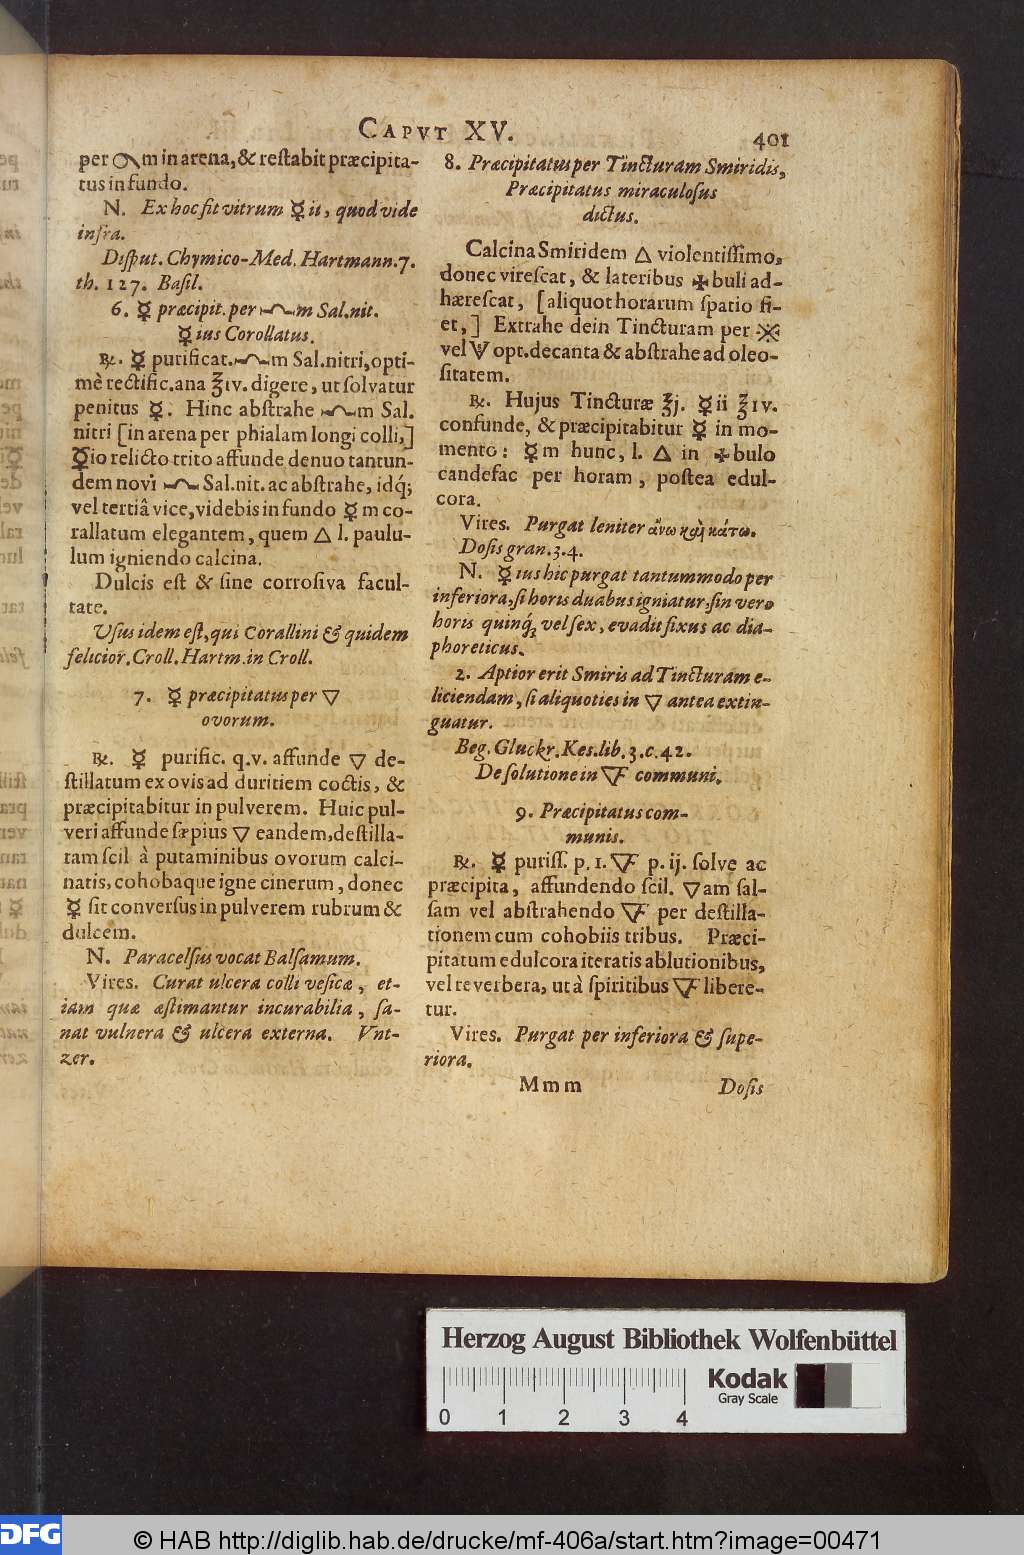 CAPVT XV.
401
per 🝭m in arena, & restabit præcipita-
tus in fundo.
N. Ex hoc fit vitrum ☿ii, quod vide
infra.
Disput. Chymico-Med. Hartmann. 7.
th. 127. Basil.
6. ☿ præcipit. per m Sal. nit.
☿ius Corollatus.
℞. ☿ purificat. m Sal. nitri, opti-
mè rectific. ana ℥iv. digere, ut solvatur
penitus ☿. Hinc abstrahe m Sal.
nitri [in arena per phialam longi colli,]
☿io relicto trito affunde denuo tantun-
dem novi Sal. nit. ac abstrahe, idq́;
vel tertiâ vice, videbis in fundo ☿m co-
rallatum elegantem, quem 🜂 l. paulu-
lum igniendo calcina.
Dulcis est & sine corrosiva facul-
tate.
Usus idem est, qui Corallini & quidem
felicior. Croll. Hartm. in Croll.
7. ☿ præcipitatus per 🜄
ovorum.
℞. ☿ purific. q. v. affunde 🜄 de-
stillatum ex ovis ad duritiem coctis, &
præcipitabitur in pulverem. Huic pul-
veri affunde sæpius 🜄 eandem, destilla-
tam scil à putaminibus ovorum calci-
natis, cohobaque igne cinerum, donec
☿ sit conversus in pulverem rubrum &
dulcem.
N. Paracelsus vocat Balsamum.
Vires. Curat ulcera colli vesicæ, et-
iam quæ æstimantur incurabilia, sa-
nat vulnera & ulcera externa. Vnt-
zer.
8. Præcipitatus per Tincturam Smiridis,
Præcipitatus miraculosus
dictus.
Calcina Smiridem 🜂 violentissimo,
donec virescat, & lateribus 🜊buli ad-
hærescat, [aliquot horarum spatio fi-
et,] Extrahe dein Tincturam per
vel opt. decanta & abstrahe ad oleo-
sitatem.
℞. Hujus Tincturæ ℥j. ☿ii ℥iv.
confunde, & præcipitabitur ☿ in mo-
mento: ☿m hunc, l. 🜂 in 🜊bulo
candefac per horam, postea edul-
cora.
Vires. Purgat leniter ἄνω καὶ κάτω.
Dosis gran. 3. 4.
N. ☿ius hic purgat tantummodo per
inferiora, si horis duabus igniatur, sin vero
horis quinq́; vel sex, evadit fixus ac dia-
phoreticus.
2. Aptior erit Smiris ad Tincturam e-
liciendam, si aliquoties in 🜄 antea extin-
guatur.
Beg. Gluckr. Kes. lib. 3. c. 42.
De solutione in 🜅 communi.
9. Præcipitatus com-
munis.
℞. ☿ puriss. p. 1. 🜅 p. ij. solve ac
præcipita, affundendo scil. 🜄am sal-
sam vel abstrahendo 🜅 per destilla-
tionem cum cohobiis tribus. Præci-
pitatum edulcora iteratis ablutionibus,
vel reverbera, ut à spiritibus 🜅 libere-
tur.
Vires. Purgat per inferiora & supe-
riora.
Mmm
Dosis
Herzog August Bibliothek Wolfenbüttel
Kodak
Gray Scale
0 1 2 3 4
DFG
© HAB http://diglib.hab.de/drucke/mf-406a/start.htm?image=00471